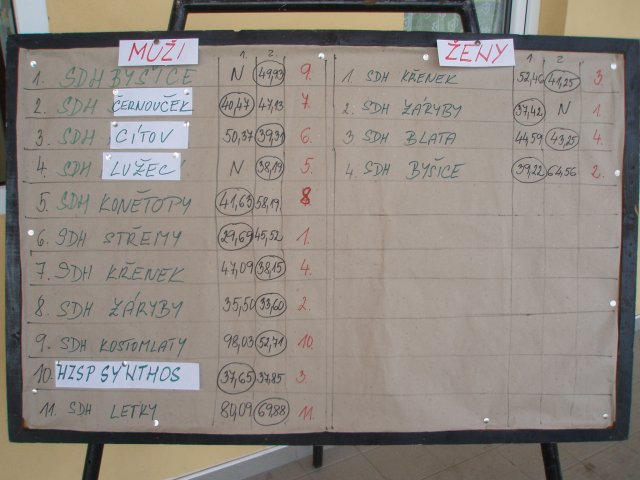 MUŽI
1. 2.
1. SDH BYŠICE N 49,93 9.
2. SDH ČERNOUČEK 40,47 47,13 7.
3. SDH CÍTOV 50,37 39,31 6.
4. SDH LUŽEC N 38,19 5.
5. SDH KONĚTOPY 41,63 58,19 8
6. SDH STŘEMY 29,69 45,52 1.
7. SDH KŘENEK 47,09 38,15 4.
8. SDH ZÁRYBY 35,50 33,60 2.
9. SDH KOSTOMLATY 98,03 52,71 10.
10. HZSP SYNTHOS 37,65 37,85 3.
11. SDH LETKY 84,09 69,88 11.
ŽENY
1. 2
1 SDH KŘENEK 52,46 41,25 3.
2. SDH ZÁRYBY 37,42 N 1.
3 SDH BLATA 44,59 43,25 4.
4. SDH BYŠICE 39,22 64,56 2.